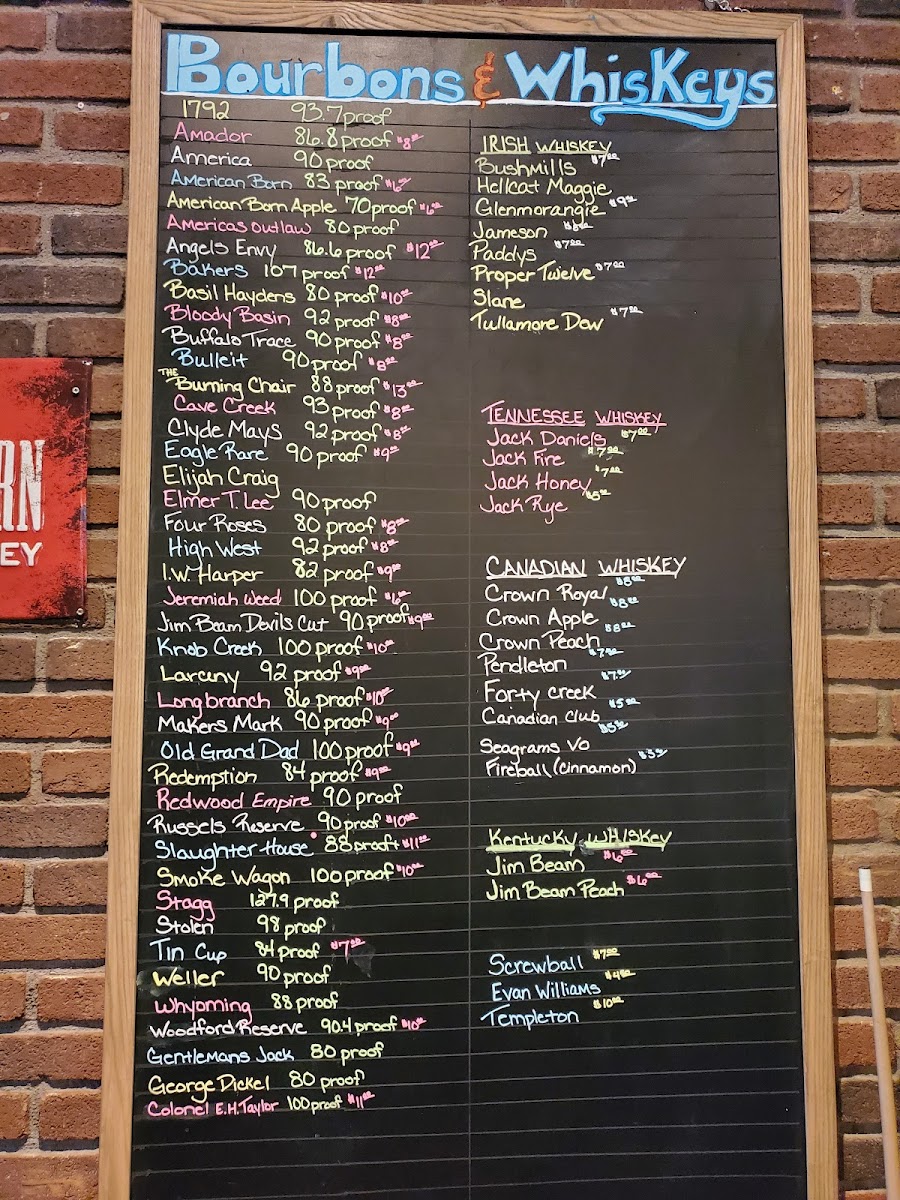 Bourbons & Whiskeys
1792 93.7 proof
Amador 86.8 proof $8.00
America 90 proof
American Born 83 proof $6.00
American Born Apple 70 proof $6.00
Americas Outlaw 80 proof
Angels Envy 86.6 proof $12.00
Bakers 107 proof $12.00
Basil Haydens 80 proof $10.00
Bloody Basin 92 proof $8.00
Buffalo Trace 90 proof $8.00
Bulleit 90 proof $8.00
THE Burning Chair 88 proof $13.00
Cave Creek 93 proof $8.00
Clyde Mays 92 proof $8.00
Eagle Rare 90 proof $9.00
Elijah Craig
Elmer T. Lee 90 proof
Four Roses 80 proof $8.00
High West 92 proof $8.00
I.W. Harper 82 proof $9.00
Jeremiah Weed 100 proof $6.00
Jim Beam Devils Cut 90 proof $9.00
Knob Creek 100 proof $10.00
Larceny 92 proof $9.00
Longbranch 86 proof $10.00
Makers Mark 90 proof $9.00
Old Grand Dad 100 proof $9.00
Redemption 84 proof $9.00
Redwood Empire 90 proof
Russels Reserve 90 proof $10.00
Slaughter House 88 proof $11.00
Smoke Wagon 100 proof $10.00
Stagg 127.9 proof
Stolen 98 proof
Tin Cup 84 proof $7.00
Weller 90 proof
Whyoming 88 proof
Woodford Reserve 90.4 proof $10.00
Gentlemans Jack 80 proof
George Dickel 80 proof
Colonel E.H. Taylor 100 proof $11.00
IRISH WHISKEY
Bushmills $7.00
Hellcat Maggie
Glenmorangie $9.00
Jameson $8.00
Paddys $7.00
Proper Twelve $7.00
Slane
Tullamore Dew $7.00
TENNESSEE WHISKEY
Jack Daniels $7.00
Jack Fire $7.00
Jack Honey $7.00
Jack Rye $5.00
CANADIAN WHISKEY
Crown Royal $8.00
Crown Apple $8.00
Crown Peach $8.00
Pendleton $7.00
Forty creek $7.00
Canadian Club $5.00
Seagrams VO $5.00
Fireball (cinnamon) $5.00
Kentucky WHISKEY
Jim Beam $6.00
Jim Beam Peach $6.00
Screwball $7.00
Evan Williams $4.00
Templeton $10.00
RN
EY